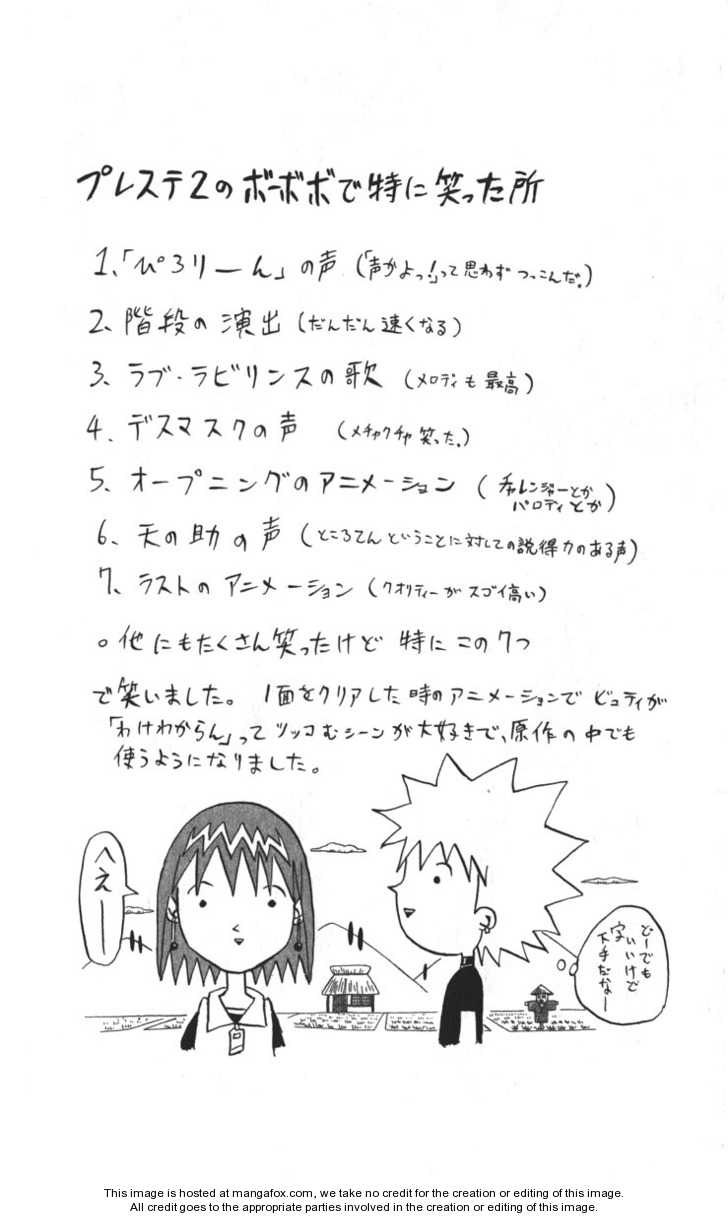 プレステ2のボーボボで特に笑った所
1、「ぴろりーん」の声 (「声かよっ!」って思わずつっこんだ。)
2、階段の演出 (だんだん速くなる)
3、ラブ・ラビリンスの歌 (メロディも最高)
4、デスマスクの声 (メチャクチャ笑った。)
5、オープニングのアニメーション (チャレンジャーとか
パロディとか)
6、天の助の声 (ところてんということに対しての説得力のある声)
7、ラストのアニメーション (クオリティーがスゴイ高い)
○他にもたくさん笑ったけど 特にこの7つ
で笑いました。 1面をクリアした時のアニメーションで ビュティが
「わけわからん」ってツッコむシーンが大好きで、原作の中でも
使うようになりました。
へぇー
どーでも
いいけど
字
下手だなー
This image is hosted at mangafox.com, we take no credit for the creation or editing of this image.
All credit goes to the appropriate parties involved in the creation or editing of this image.